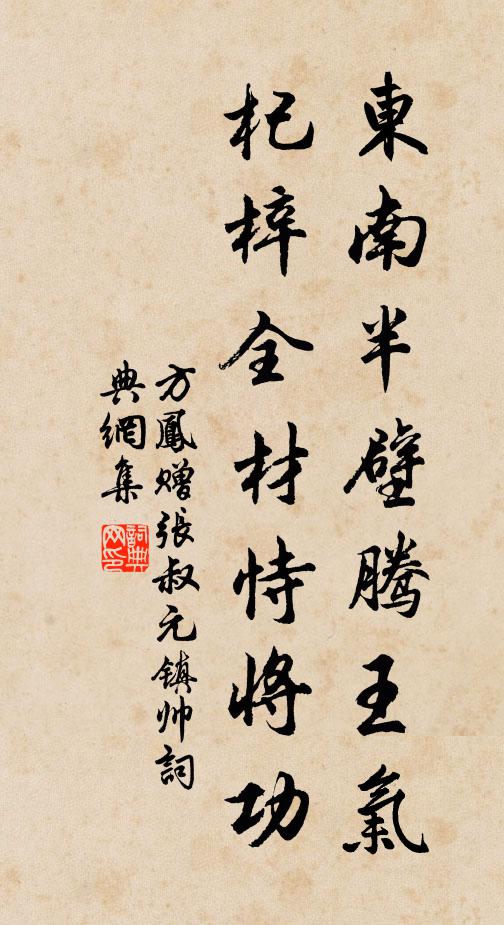 東南半壁騰王氣
杞梓全材恃將功
方鳳贈張叔元鎮帅詞
典網集
詞典網印